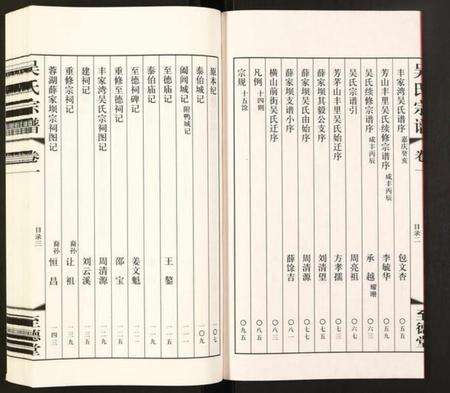 吴氏宗谱 卷一
目录二
至德堂
丰家湾吴氏谱序 嘉庆癸亥 包文杏 〇五五
芳茅山丰里吴氏续修宗谱序 咸丰丙辰 李毓华 〇五九
吴氏续修宗谱序 咸丰丙辰 承越 〇六三
吴氏宗谱引 周亮祖 〇六五
芳茅山丰里吴氏始迁序 方孝孺 〇七三
薛家坝其毅公支序 刘清望 〇七五
薛家坝吴氏由始序 周清源 〇七七
薛家坝支谱小序 薛馀吉 〇八一
横山前街吴氏迁序 〇八三
凡例 十四则 〇八五
宗规 十五馀 〇九五
原本本纪 一〇七
泰伯城记 一〇九
阖闾城记 附鸭城记 一一一
至德庙记 王鏊
泰伯庙记
至德祠碑记 姜文魁
重修至德祠记 邵宝
丰家湾吴氏宗祠图记 周清源
建祠记 刘云溪 一三五
重修宗祠记 裔孙 让祖 一三九
蓉湖薛家坝宗祠图记 裔孙 恒昌 一四三
吴氏宗谱 卷一
目录三
至德堂